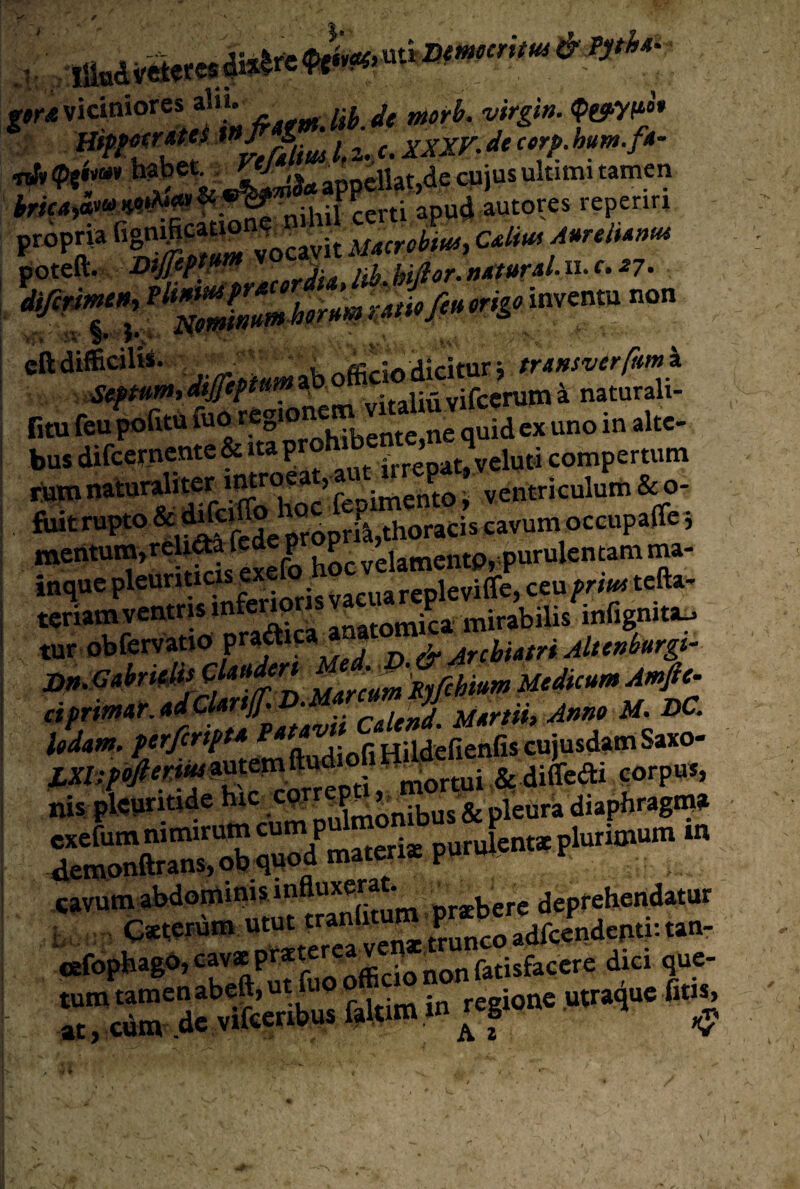 3.
Illud veteres dixêre Φρένας, uti Democritus & Pytha-
gora viciniores alii.
Hippocrates in fragm. lib. de morb. virgin. φραγμὸν
τῶν Φρένων habet. Vesalius l. 2. c. XXXV. de corp. hum. fa-
appellat, de cujus ultimi tamen
propria significatione nihil certi apud autores reperiri
potest. Disseptum vocavit Macrobius, Cælius Aurelianus
discrimen, Plinius præcordia, lib. histor. natural. 11. c. 27.
§. 3. Nominum horum ratio seu origo inventu non
est difficilis.
Septum, disseptum ab officio dicitur; transversum à
situ seu positu suo regionem vitaliũ viscerum à naturali-
bus discernente & ita prohibente, ne quid ex uno in alte-
rum naturaliter introeat, aut irrepat, veluti compertum
fuit rupto & discisso hoc sepimento, ventriculum & o-
mentum, relictâ sede propriâ, thoracis cavum occupasse;
inque pleuriticis exeso hoc velamento, purulentam ma-
teriam ventris inferioris vacua replevisse, ceu prius testa-
tur observatio practica anatomica mirabilis insignita
Dn. Gabrielis Clauderi Med. D. & Archiatri Altenburgi-
ci primar. ad Clariss. D. Marcum Ryschium Medicum Amste-
lodam. perscripta Patavii Calend. Martii, Anno M. DC.
LXI: posterius autem studiosi Hildesiensis cujusdam Saxo-
nis pleuritide hic correpti, mortui & dissecti corpus,
exesum nimirum cum pulmonibus & pleura diaphragma
demonstrans, ob quod materiæ purulentæ plurimum in
cavum abdominis influxerat.
Cæterùm utut transitum præbere deprehendatur
œsophago, cavæ præterea venæ trunco adscendenti: tan-
tum tamen abest, ut suo officio non satisfacere dici que-
at, cùm de visceribus saltim in regione utraque sitis,
A 2